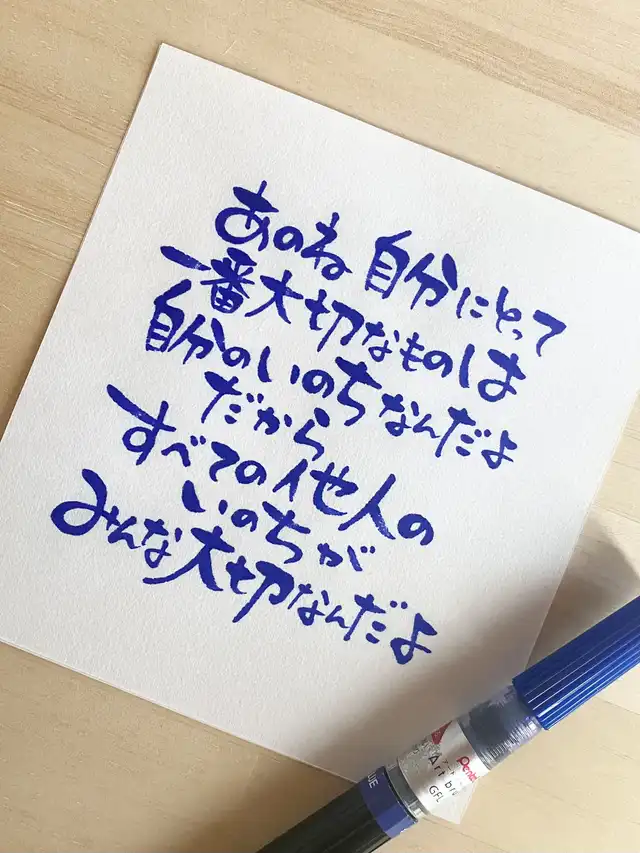 あのね 自分にとって
一番大切なものは
自分のいのちなんだよ
だから
すべての他人の
いのちが
みんな大切なんだよ
Pente
Art br
GFL
UE